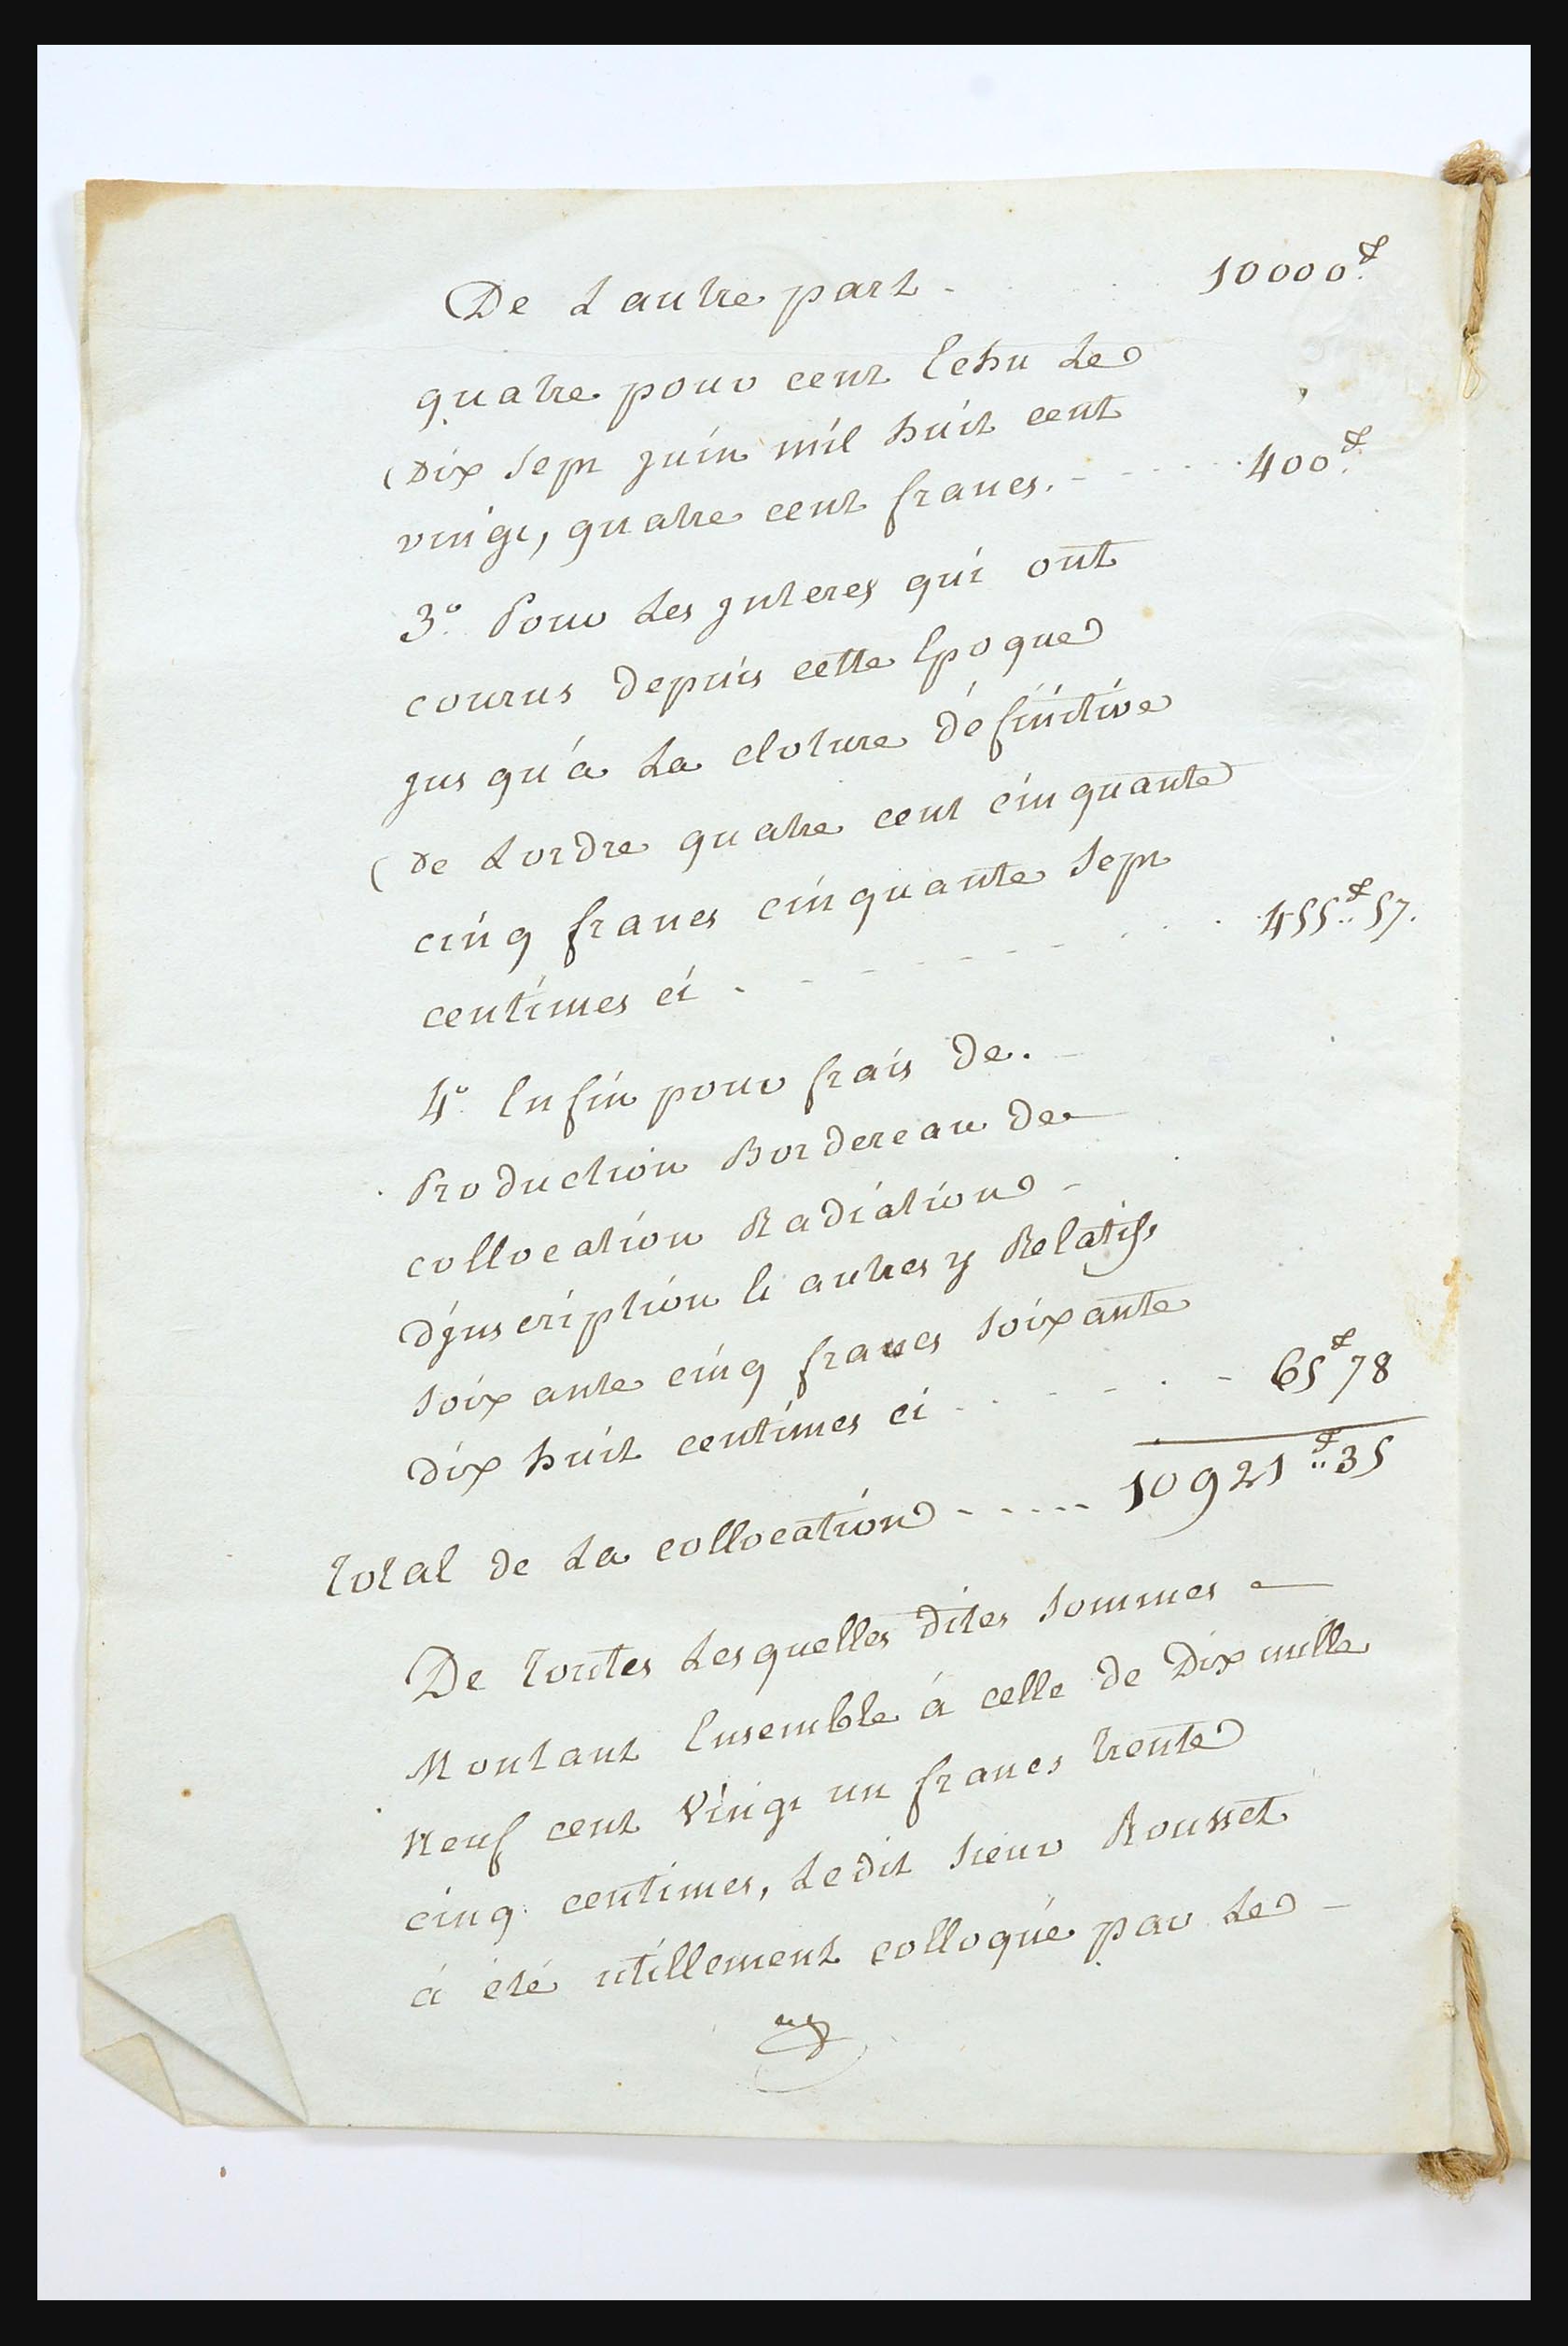 De Lautre part - 10000ᶠ
quatre pour cent Echu Le
Dix Sept juin mil huit cent
vingt, quatre cent francs. - - - - 400ᶠ
3.° Pour Les jnteres qui ont
courus depuis cette Epoque
jusqu'à La cloture définitive
De Lordre quatre cent cinquante
cinq francs cinquante Sept
centimes ci - - - - - - - 455ᶠ 57.
4.° Enfin pour frais De.
Production Bordereau De
collocation Radiation -
Djnscription Et autres y Relatifs
Soixante cinq francs Soixante
Dix huit centimes ci - - - - - 65ᶠ 78
Total de La collocation - - - - - 10921ᶠ 35
De Toutes Lesquelles dites Sommes
Montant Ensemble à celle de Dix mille
Neuf cent Vingt un francs trente
cinq centimes, Ledit Sieur Rousset
à été utillement colloqué par Le -